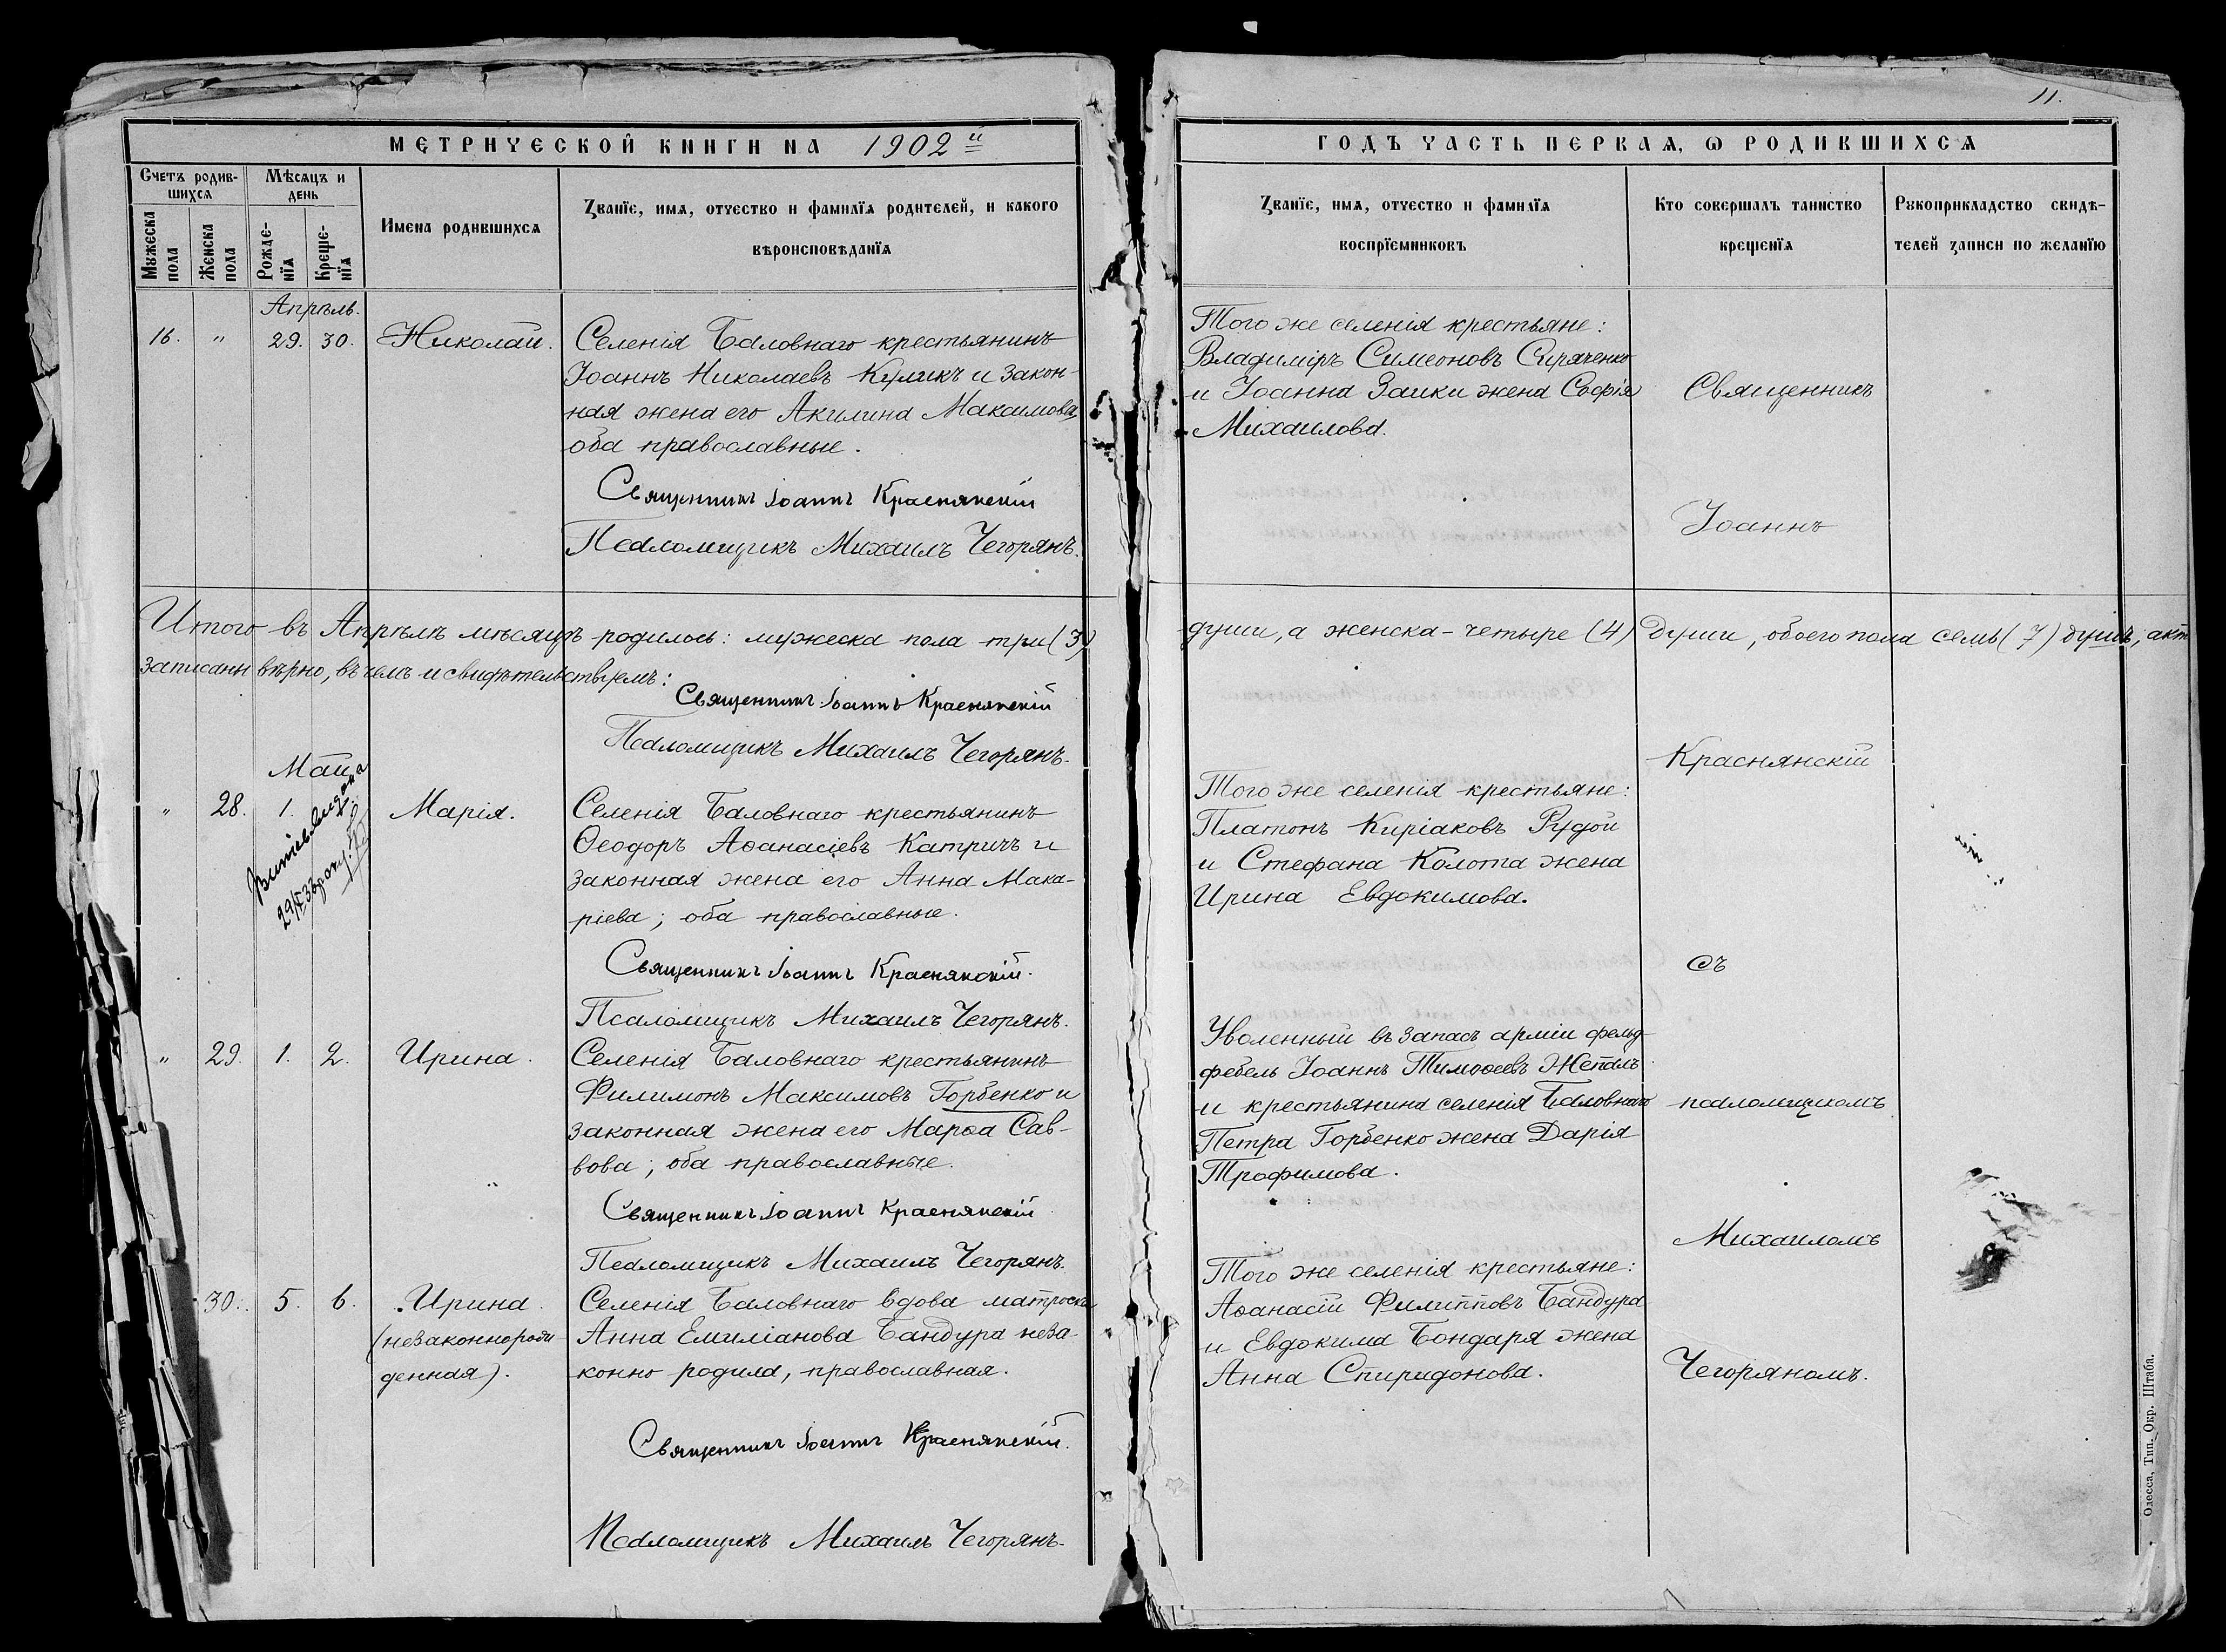 МЕТРИЧЕСКОЙ КНИГИ НА 1902й
Счетъ родив-
шихся
Мѣсяцъ и
день
Мужеска
пола
Женска
пола
Рожде-
нїя
Креще-
нїя
Имена родившихся
Званїе, имя, отчество и фамилїя родителей, и какого
вѣроисповѣданїя
Апрѣль.
16. " 29. 30. Николай.
Селенія Баловнаго крестьянинъ
Іоаннъ Николаевъ Куликъ и закон-
ная жена его Акилина Максимова,
оба православные.
Священникъ Іоаннъ Краснянскій
Псаломщикъ Михаилъ Чегорянъ.
Итого въ Апрѣлѣ мѣсяцѣ родилось: мужеска пола три (3)
записаны вѣрно, въ чемъ и свидѣтельствуемъ:
Священникъ Іоаннъ Краснянскій
Псаломщикъ Михаилъ Чегорянъ.
Май
" 28. 1. 2. Марія.
Селенія Баловнаго крестьянинъ
Ѳеодоръ Аѳанасіевъ Катричъ и
законная жена его Анна Мака-
ріева; оба православные.
Священникъ Іоаннъ Краснянскій.
Псаломщикъ Михаилъ Чегорянъ.
" 29. 1. 2. Ирина.
Селенія Баловнаго крестьянинъ
Филимонъ Максимовъ Горбенко и
законная жена его Марѳа Сав-
вова; оба православные.
Священникъ Іоаннъ Краснянскій
Псаломщикъ Михаилъ Чегорянъ.
30. 5. 6. Ирина.
(незаконнорож-
денная).
Селенія Баловнаго вдова матроска
Анна Емиліанова Бандура неза-
конно родила, православная.
Священникъ Іоаннъ Краснянскій.
Псаломщикъ Михаилъ Чегорянъ.
11.
ГОДЪ ЧАСТЬ ПЕРВАЯ, Ѡ РОДИВШИХСЯ
Званїе, имя, отчество и фамилїя
воспрїемниковъ
Кто совершалъ таинство
крещенїя
Рукоприкладство свидѣ-
телей записи по желанїю
Того же селенія крестьяне:
Владиміръ Симеоновъ
и Іоанна Заики жена Софія
Михаилова.
души, а женска - четыре (4) души, обоего пола семь (7) душъ, акт
Того же селенія крестьяне:
Платонъ Киріаковъ Рудой
и Стефана Колота жена
Ирина Евдокимова.
Уволенный въ запасъ арміи фельд-
фебель Іоаннъ Тимоѳеевъ
и крестьянина селенія Баловнаго
Петра Горбенко жена Дарія
Трофимова.
Того же селенія крестьяне:
Аѳанасій Филипповъ Бандура
и Евдокима Бондаря жена
Анна Спиридонова.
Священникъ
Іоаннъ
Краснянскій
съ
псаломщикомъ
Михаиломъ
Чегоряномъ.
Одесса, Тип. Окр. Штаба.